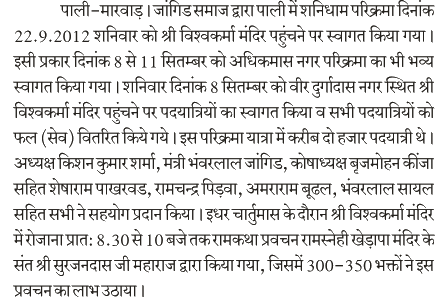 पाली-मारवाड़। जांगिड समाज द्वारा पाली में शनिधाम परिक्रमा दिनांक
22.9.2012 शनिवार को श्री विश्वकर्मा मंदिर पहुंचने पर स्वागत किया गया।
इसी प्रकार दिनांक 8 से 11 सितम्बर को अधिकमास नगर परिक्रमा का भी भव्य
स्वागत किया गया। शनिवार दिनांक 8 सितम्बर को वीर दुर्गादास नगर स्थित श्री
विश्वकर्मा मंदिर पहुंचने पर पदयात्रियों का स्वागत किया व सभी पदयात्रियों को
फल (सेव) वितरित किये गये। इस परिक्रमा यात्रा में करीब दो हजार पदयात्री थे।
अध्यक्ष किशन कुमार शर्मा, मंत्री भंवरलाल जांगिड, कोषाध्यक्ष बृजमोहन कींजा
सहित शेषाराम पाखरवड, रामचन्द्र पिड़वा, अमराराम बूढल, भंवरलाल सायल
सहित सभी ने सहयोग प्रदान किया। इधर चार्तुमास के दौरान श्री विश्वकर्मा मंदिर
में रोजाना प्रात: 8.30 से 10 बजे तक रामकथा प्रवचन रामस्नेही खेड़ापा मंदिर के
संत श्री सुरजनदास जी महाराज द्वारा किया गया, जिसमें 300-350 भक्तों ने इस
प्रवचन का लाभ उठाया।